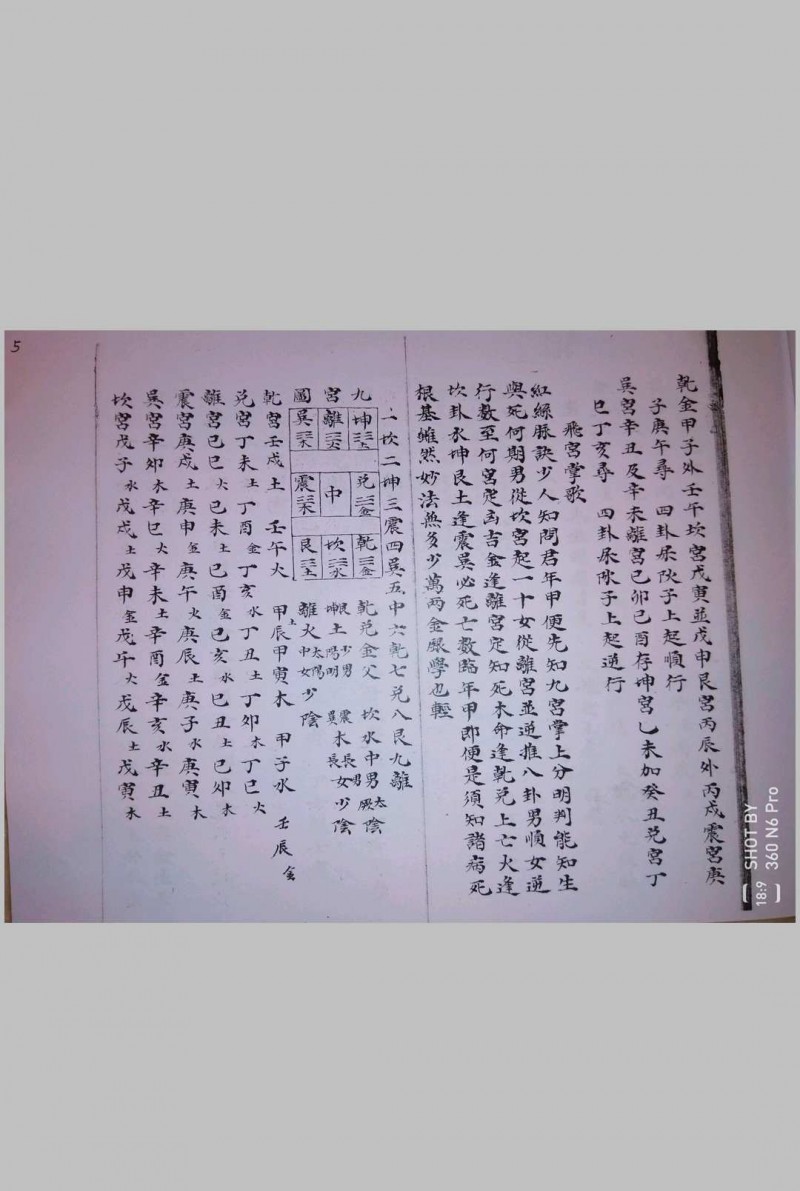 乾金甲子外壬午坎宮戊寅並戊申艮宮丙辰外丙戌震宮庚
子庚午尋　四卦屎陽子上起順行
巽宮辛丑及辛未離宮己卯己酉存坤宮乙未加癸丑兌宮丁
巳丁亥尋　四卦屎陰子上起逆行
飛宮掌歌
紅線脉訣少人知問君年甲便先知九宮掌上分明判能知生
與死何期男從坎宮起一十女從離宮並逆推八卦男順女逆
行數至何宮定凶吉金逢離宮定知死木命逢乾兌上亡火逢
坎卦水坤艮土逢震巽必死亡數臨年甲即便是須知諸病死
根基雖然妙法無多少萬両金銀學也輕
一坎二坤三震四巽五中六乾七兌八艮九離
九宮圖
坤土 兌金 乾金
離火 中 坎水
巽木 震木 艮土
乾兌金父　坎水中男太陰厥陰
艮坤土少男陽明　震巽木長男長女少陰
離火太陽中女少陰
乾宮壬戌土　壬午火　甲辰土甲寅木　甲子水　壬辰
兌宮丁未土丁酉金丁亥水丁丑土丁卯木丁巳火
離宮己巳火己未土己酉金己亥水己丑土己卯木
震宮庚戌土庚申金庚午火庚辰土庚子水庚寅木
巽宮辛卯木辛巳火辛未土辛酉金辛亥水辛丑土
坎宮戊子水戊戌土戊申金戊午火戊辰土戊寅木
5
SHOT BY
360 N6 Pro
18:9